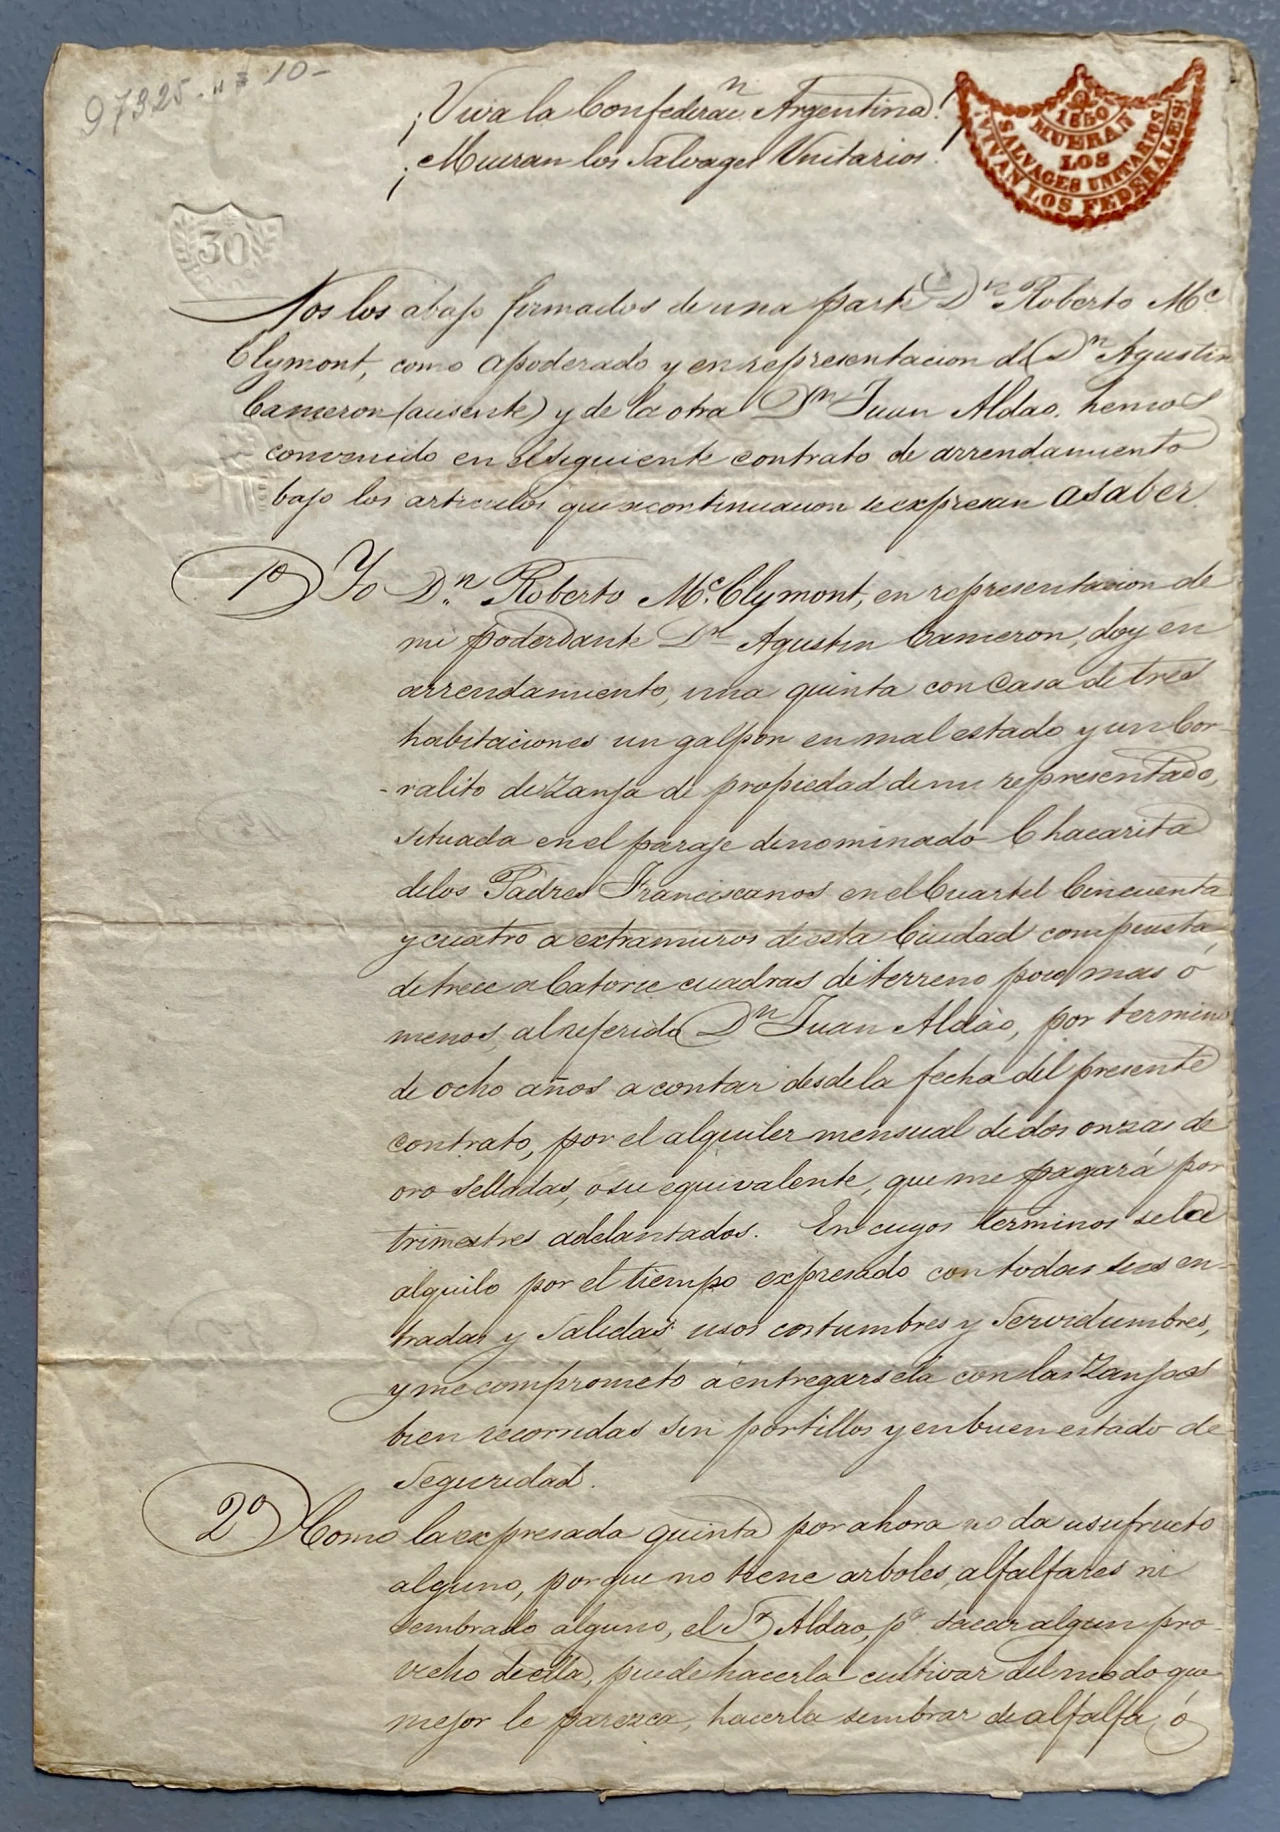 97325. 10-
¡Viva la Confederacn. Argentina!
¡Mueran los Salvages Unitarios!
1850
MUERAN
LOS
SALVAGES UNITARIOS
¡VIVAN LOS FEDERALES!
30
Nos los abajo firmados de una parte Dn. Roberto Mc.
Clymont, como apoderado y en representacion de Dn. Agustin
Cameron (ausente) y de la otra Dn. Juan Aldao, hemos
convenido en el siguiente contrato de arrendamiento
bajo los articulos que acontinuacion se expresan asaber.
1º Yo Dn. Roberto Mc. Clymont, en representacion de
mi poderdante Dn. Agustin Cameron, doy en
arrendamiento, una quinta con Casa de tres
habitaciones un galpon en mal estado y un Cor-
-ralito de Zanja de propiedad de mi representado,
situada en el paraje denominado Chacarita
de los Padres Franciscanos en el Cuartel Cincuenta
y cuatro a extramuros de esta Ciudad compuesta
de trece a Catorce cuadras de terreno poco mas ó
menos, al referido Dn. Juan Aldao, por termino
de ocho años a contar desde la fecha del presente
contrato, por el alquiler mensual de dos onzas de
oro selladas, o su equivalente, que me pagará por
trimestres adelantados. En cuyos terminos se la
alquilo por el tiempo expresado con todas sus en-
tradas y Salidas, usos costumbres y Servidumbres,
y me comprometo á entregarsela con las Zanjas
bien recorridas sin portillos y en buen estado de
Seguridad.
2º Como la expresada quinta por ahora no da usufructo
alguno, porque no tiene arboles, alfalfares ni
sembrado alguno, el Sr. Aldao, pa. sacar algun pro-
vecho de ella, puede hacerla cultivar del modo que
mejor le parezca, hacerla sembrar de alfalfa, ó